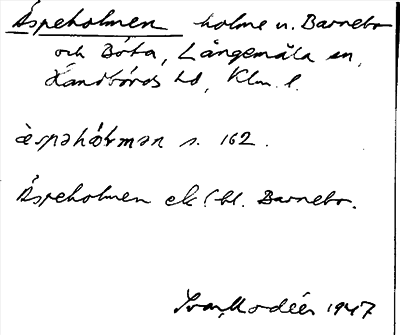 Äspeholmen holme n. Barnebo
och Bóta, Långemåla sn,
Handbörds hd, Klm. l.
äspəhål̄mən s. 162.
Äspeholmen ek (bl. Barnebo.
Ivar Modéer 1947